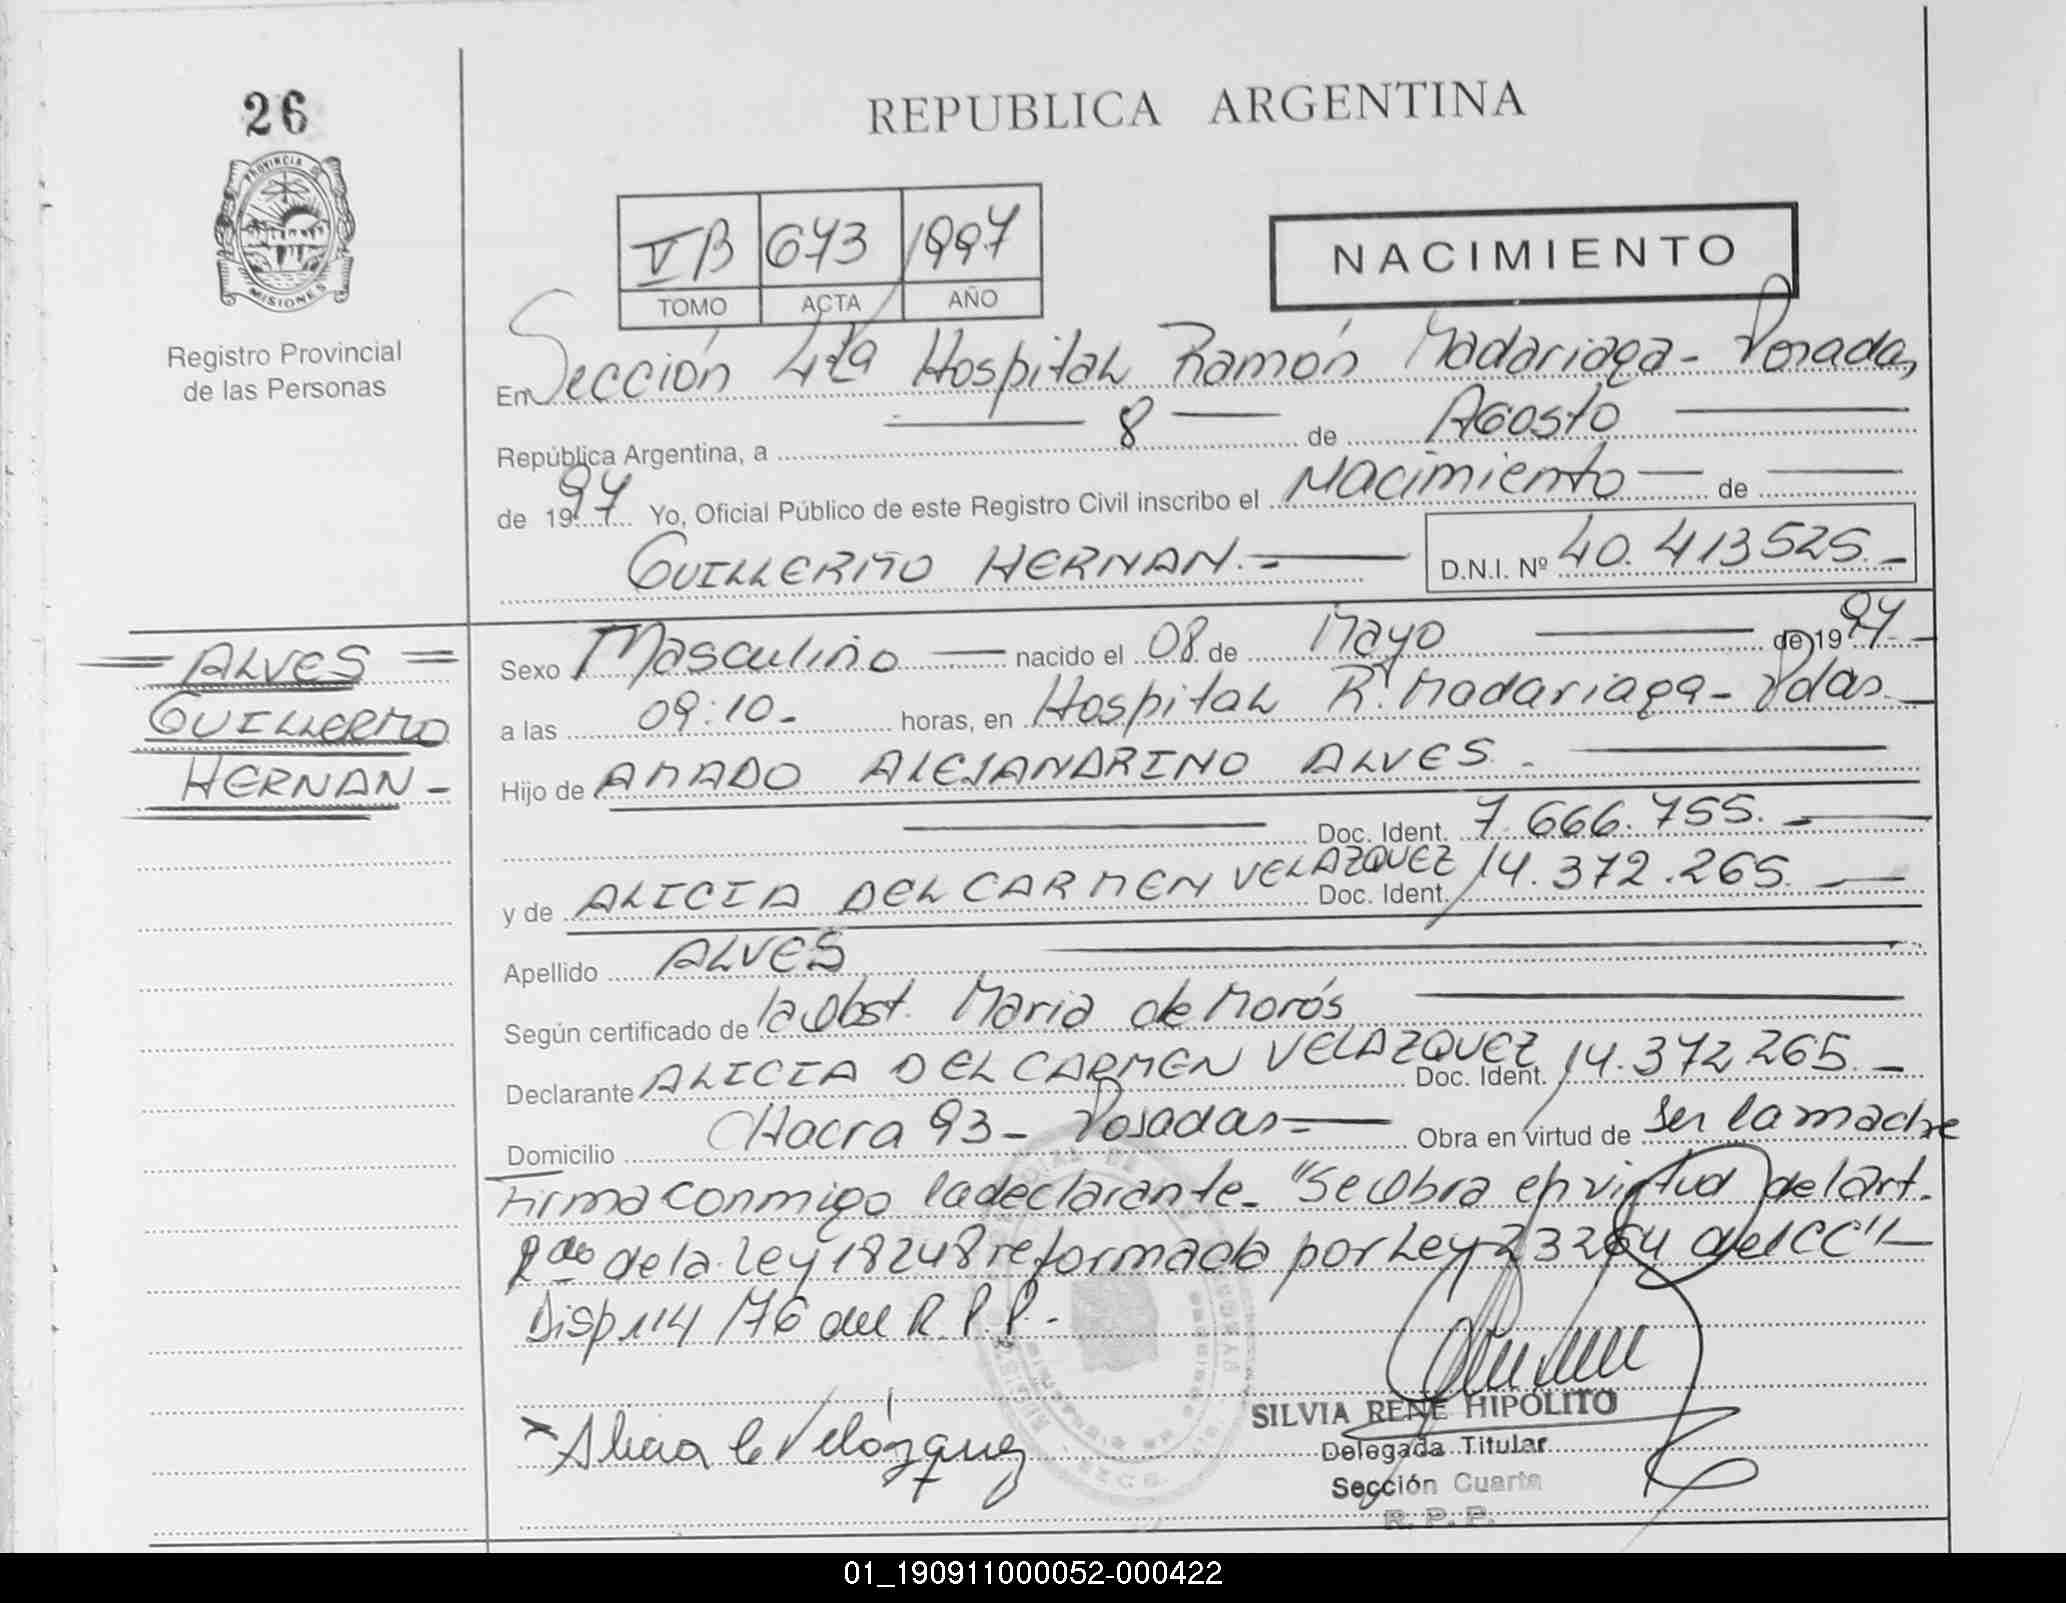 26
REPUBLICA ARGENTINA
PROVINCIA DE
MISIONES
Registro Provincial
de las Personas
VB 673 1997
TOMO ACTA AÑO
NACIMIENTO
En Sección 4ta Hospital Ramón Madariaga - Posadas,
República Argentina, a 8 de Agosto
de 1997 Yo, Oficial Público de este Registro Civil inscribo el Nacimiento de
GUILLERMO HERNAN.- D.N.I. Nº 40.413525.-
ALVES
GUILLERMO
HERNAN-
Sexo Masculino nacido el 08 de Mayo de 1997-
a las 09:10- horas, en Hospital R. Madariaga - Pdas-
Hijo de AMADO ALEJANDRINO ALVES-
Doc. Ident. 7.666.755.-
y de ALICIA DEL CARMEN VELAZQUEZ Doc. Ident. 14.372.265.-
Apellido ALVES
Según certificado de la Obst. Maria de Morós
Declarante ALICIA DEL CARMEN VELAZQUEZ Doc. Ident. 14.372.265.-
Domicilio Chacra 93- Posadas- Obra en virtud de ser la madre
Firma conmigo la declarante- "Se obra en virtud del art.
2do de la Ley 18248 reformada por Ley 23264 del CC"-
Disp 114/76 del R.P.P.-
x Alicia C Velázquez
SILVIA RENE HIPÓLITO
Delegada Titular
Sección Cuarta
R. P. P.
01_190911000052-000422